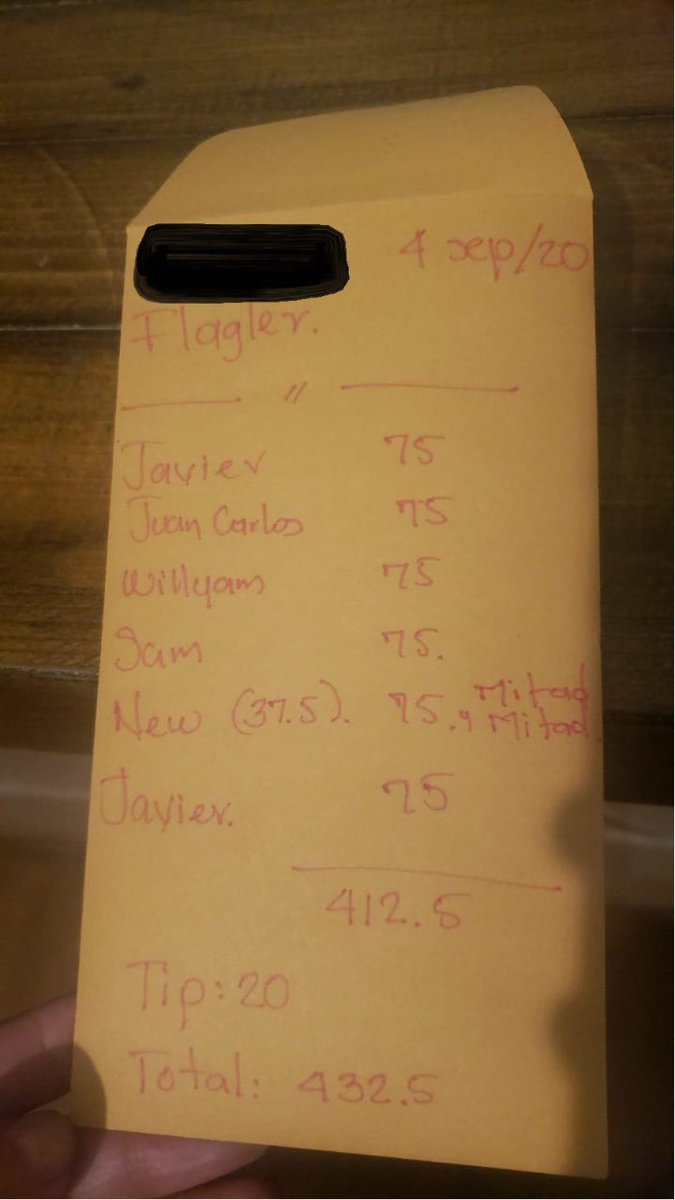 4 sep/20
Flagler.
"
Javier 75
Juan Carlos 75
Willyam 75
Sam 75.
New (37.5). 75. Mitad
y Mitad
Javier. 75
412.5
Tip: 20
Total: 432.5